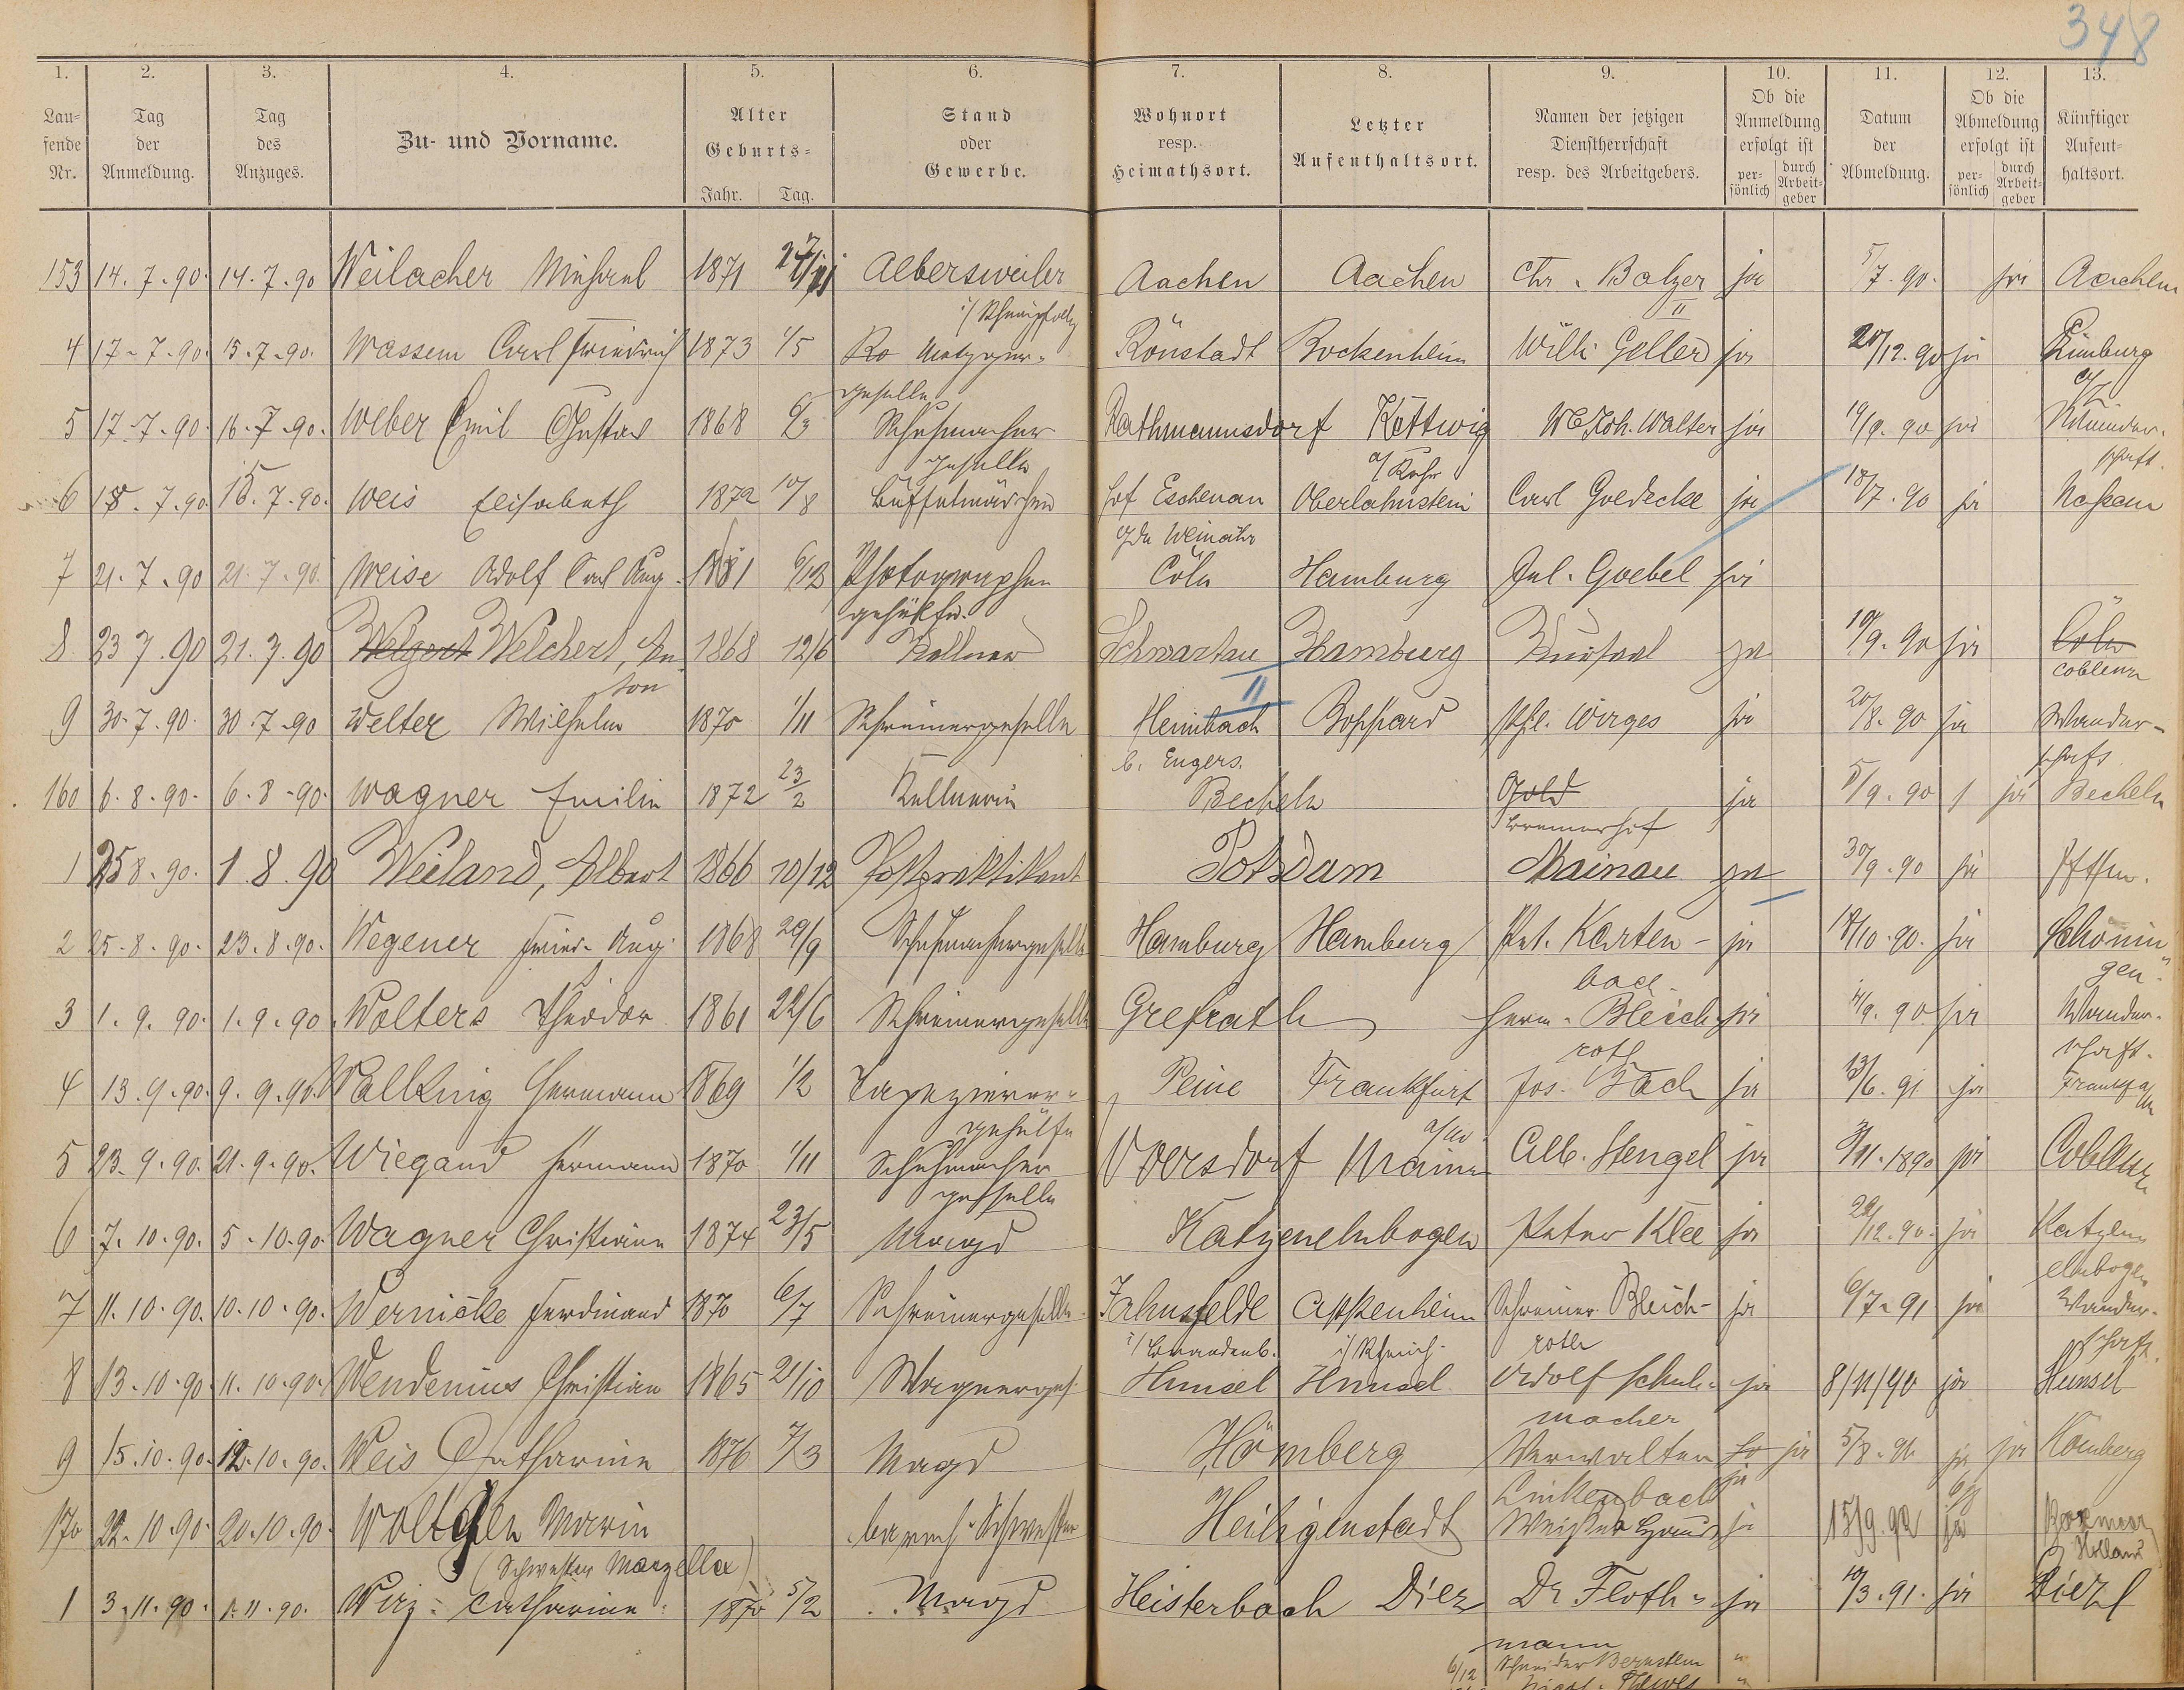 348
1. 2. 3. 4. 5. 6. 7. 8. 9. 10. 11. 12. 13.
Lau-
fende
Nr.
Tag
der
Anmeldung.
Tag
des
Anzuges.
Zu- und Vorname.
Alter
Geburts-
Jahr. Tag.
Stand
oder
Gewerbe.
Wohnort
resp.
Heimathsort.
Letzter
Aufenthaltsort.
Namen der jetzigen
Dienstherrschaft
resp. des Arbeitgebers.
Ob die
Anmeldung
erfolgt ist
per-
sönlich
durch
Arbeit-
geber
Datum
der
Abmeldung.
Ob die
Abmeldung
erfolgt ist
per-
sönlich
durch
Arbeit-
geber
Künftiger
Aufent-
haltsort.
153 14. 7. 90. 14. 7. 90 Weilacher Michael 1871 Albersweiler Aachen Aachen Chr. Balzer ja 5/7. 90. ja Aachen
II
4 17. 7. 90. 15. 7. 90. Wassem Carl Friedrich 1873 1/5 Metzger- Rönstadt Bockenheim Willi Geller ja 20/12. 90 ja Limburg
geselle
5 17. 7. 90. 16. 7. 90. Weber Emil Gustav 1868 6/3 Schuhmacher Rathmannsdorf Kettwig Joh. Walter ja 19/9. 90 ja Wander-
geselle a/ Ruhr schaft.
6 18. 7. 90. 15. 7. 90. Weis Elisabeth 1872 10/8 Büffetmädchen Hof Eschenau Oberlahnstein Carl Goedecke ja 18/7. 90 ja Nassau
Weinähr
7 21. 7. 90 21. 7. 90. Weise Adolf Carl Aug. 6/12 Photographen Cöln Hamburg Jul. Goebel ja
gehülfe.
8 23 7. 90 21. 7. 90 Weigert Welchert, An 1868 12/6 Kellner Schwartau Hamburg Kursaal ja 10/9. 90 ja Cöln
ton II Coblenz
9 30. 7. 90. 30. 7. 90 Welter Wilhelm 1870 1/11 Schreinergeselle Heimbach Boppard Phl. Wirges ja 20/8. 90 ja Wander-
b. Engers. schaft
160 6. 8. 90. 6. 8. 90. Wagner Emilie 1872 23/2 Kellnerin Becheln Gold ja 5/9. 90 ja Becheln
Bremerhof
1 25 8. 90. 1. 8. 90 Weiland, Albert 1866 10/12 Postpraktikant Potsdam Mainau ja 30/9. 90 ja
2 25. 8. 90. 23. 8. 90. Wegener Fried. Aug. 1868 29/9 Schuhmachergeselle Hamburg Hamburg Pet. Karten- ja 18/10. 90. ja Schönin
bach. gen.
3 1. 9. 90. 1. 9. 90. Wolters Theodor 1861 22/6 Schreinergeselle Grefrath Herm. Bleich- ja 4/9. 90 ja Wander-
roth schaft.
4 13. 9. 90. 9. 9. 90. Wallking Hermann 1869 1/2 Tapezierer- Peine Frankfurt Jos. Bach ja 13/6. 91 ja Frankf a/
gehülfe a/M M
5 23. 9. 90. 21. 9. 90. Wiegand Hermann 1870 1/11 Schuhmacher Voersdorf Mainz Alb. Stengel ja 3/11. 1890 ja Coblenz
geselle
6 7. 10. 90. 5. 10. 90. Wagner Christiane 1874 23/5 Magd Katzenelnbogen Peter Klee ja 22/12. 90. ja Katzen-
elnbogen
7 11. 10. 90. 10. 10. 90. Wernicke Ferdinand 1870 6/7 Schreinergeselle Jahnsfelde Appenheim Schreiner Bleich- ja 6/7. 91 ja Wander-
i/ Brandenb. i/ Rheinh. roth schaft.
8 13. 10. 90. 11. 10. 90. Wendenius Christian 1865 21/10 Wagnerges. Hunsel Hunsel Adolf Schuh- ja 8/11/90 ja Hunsel
macher
9 15. 10. 90. 12. 10. 90. Weis Catharine 1876 7/3 Magd Hömberg Verwalter ja 5/8. ja ja Hömberg
Linkenbach ja
170 22. 10. 90. 20. 10. 90. Woltgen Maria barmh. Schwester Heiligenstadt ja 15/9. 92 ja Boxmeer
(Schwester Marzella) Holland
1 3. 11. 90. 1. 11. 90. Wirz Catharine 1870 5/2 Magd Heisterbach Diez Dr Floth- ja 10/3. 91. ja Diez
mann
6/12 Schneider Bernstein "
Thewes "